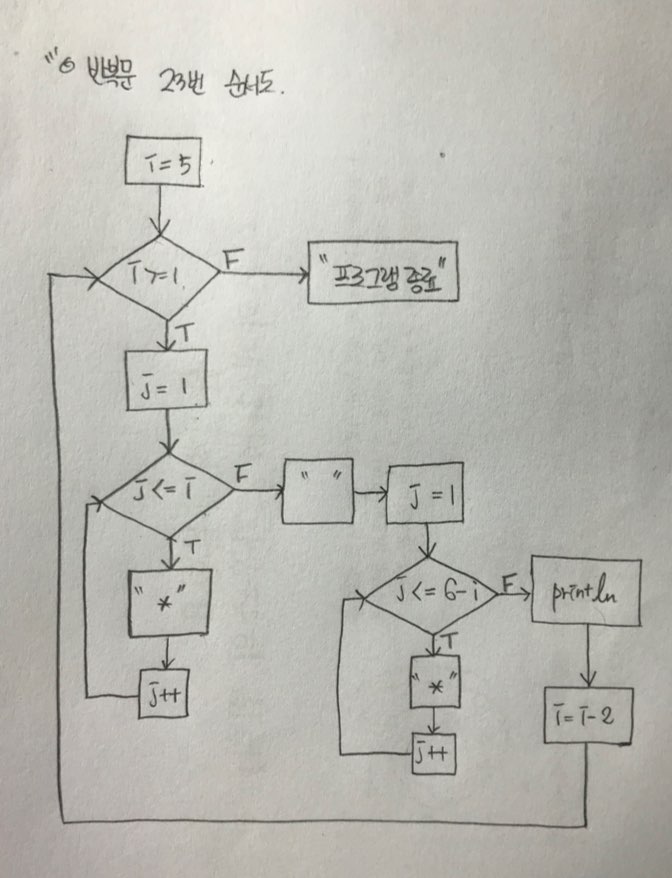 반복문 23번 순서도.
i = 5
i >= 1
F
"프로그램 종료"
T
j = 1
j <= i
F
" "
j = 1
T
"*"
j++
j <= 6-i
F
println
T
"*"
j++
i = i-2